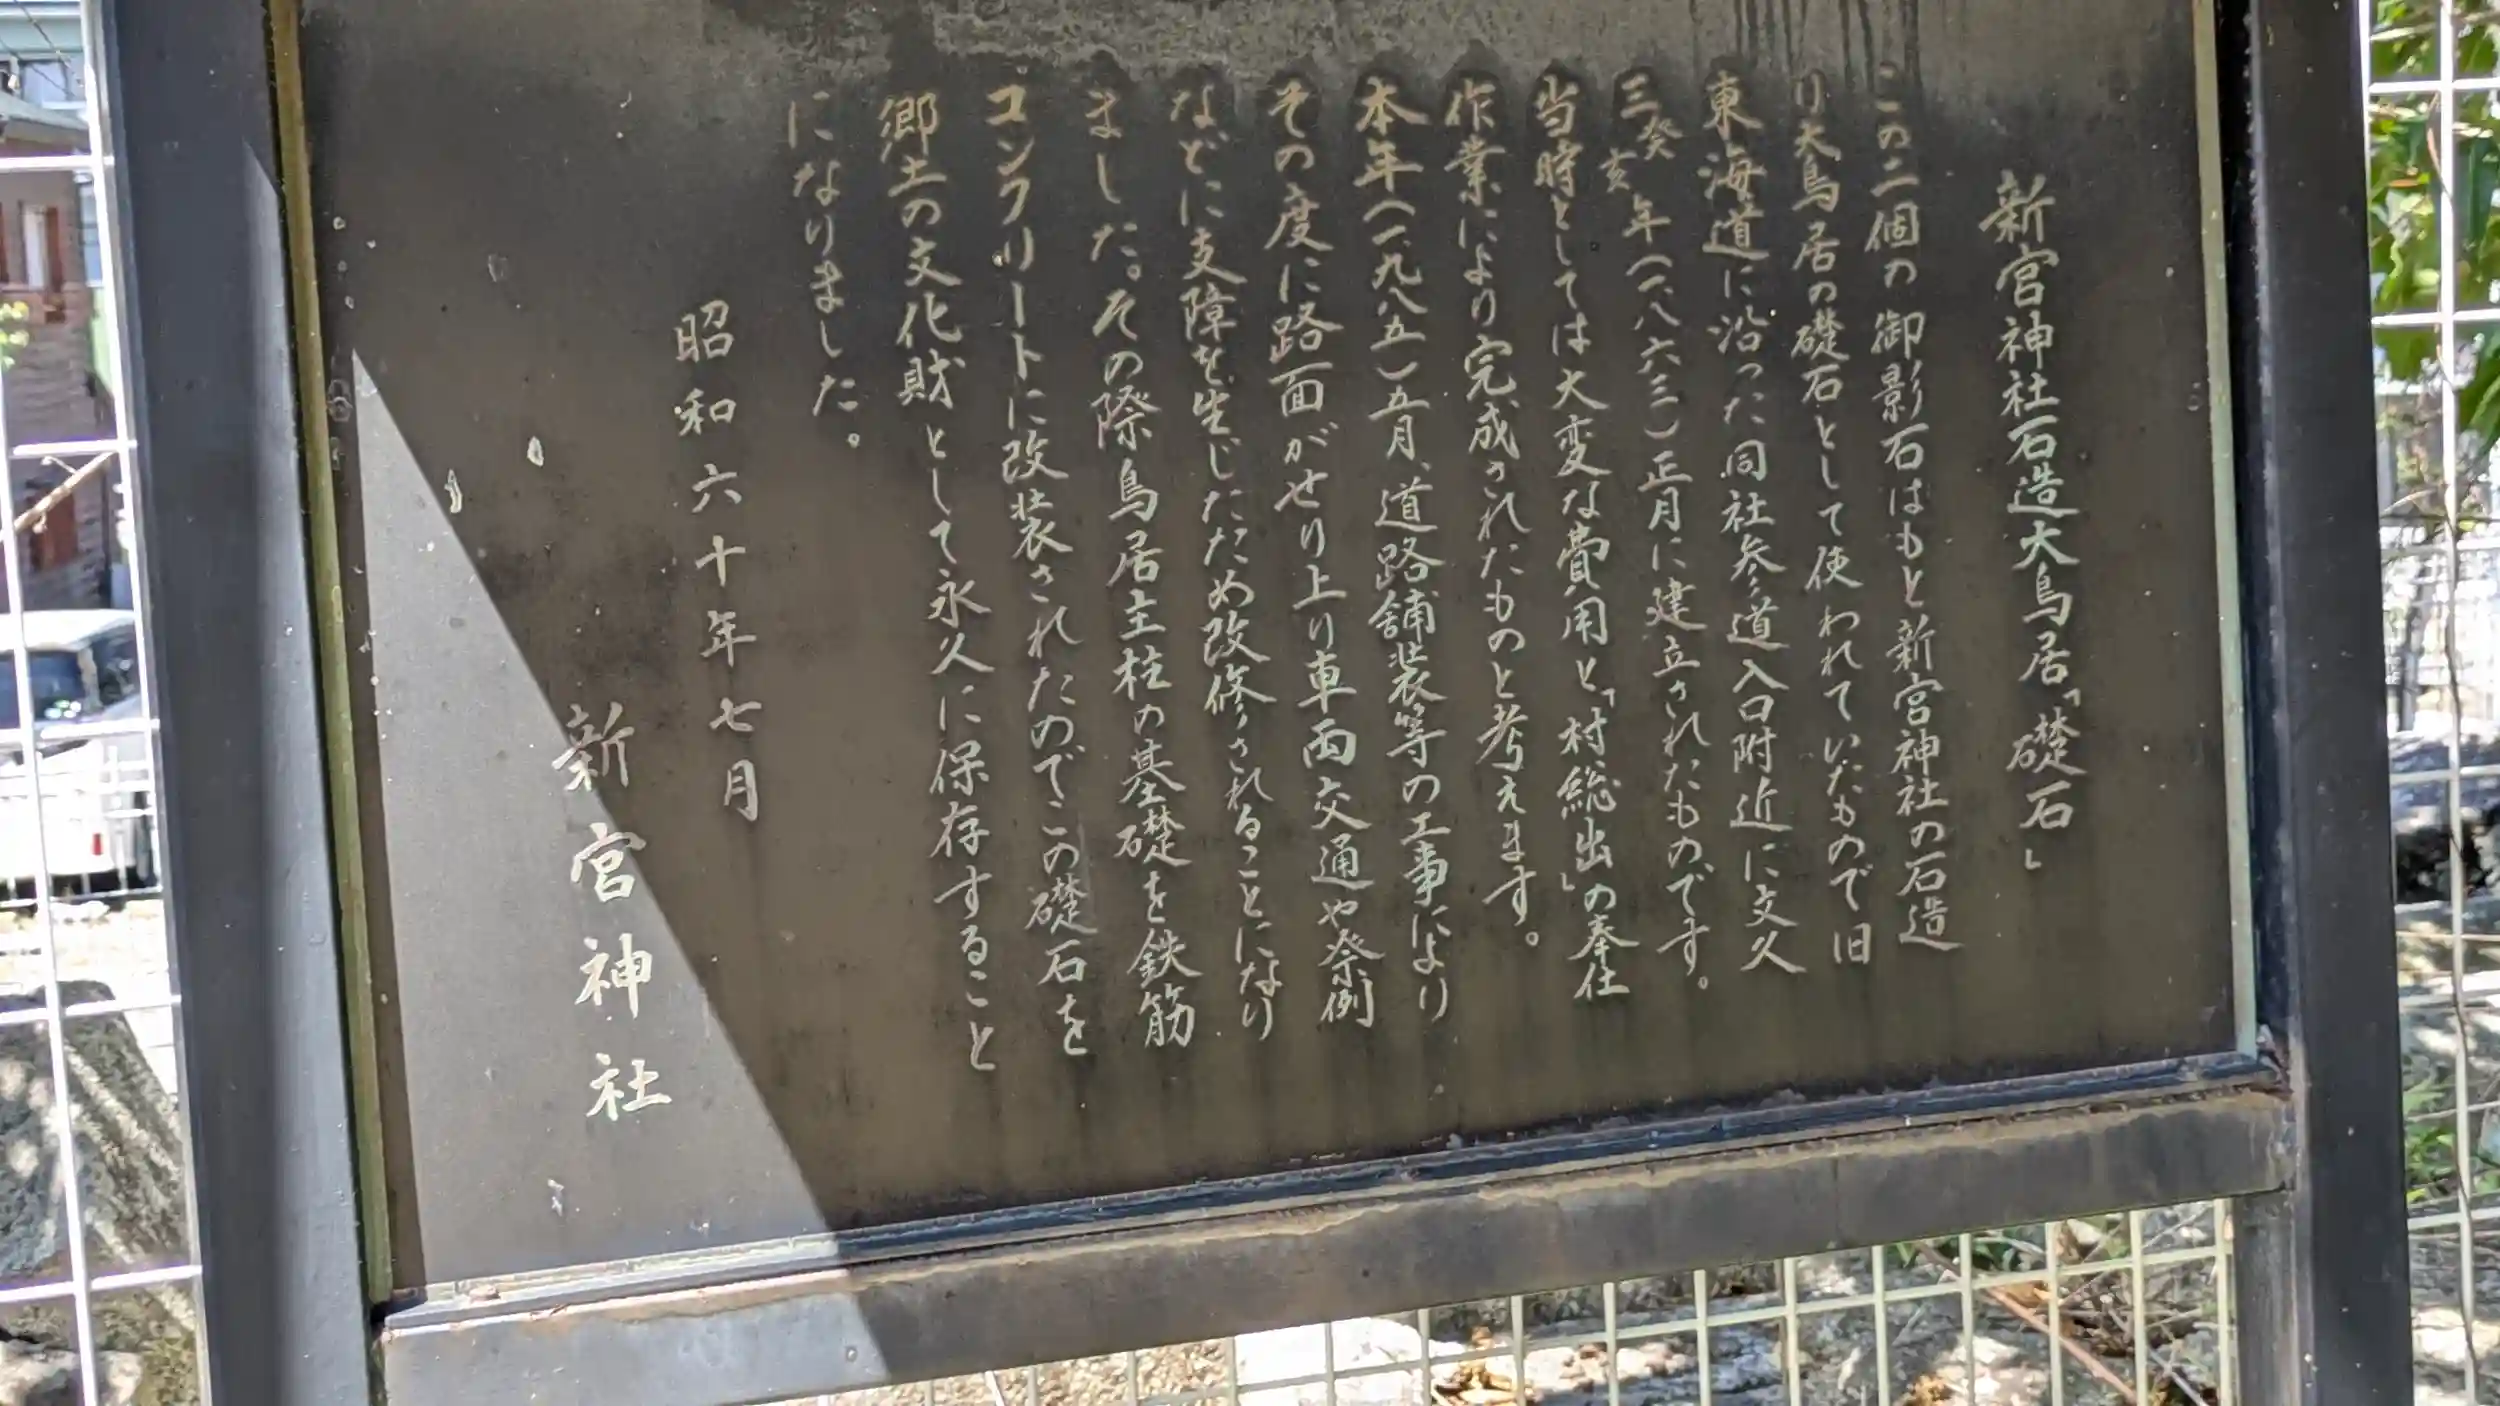 新宮神社石造大鳥居「礎石」
この二個の御影石はもと新宮神社の石造
り大鳥居の礎石として使われていたもので旧
東海道に沿った同社参道入口附近に文久
三癸亥年(一八六三)正月に建立されたものです。
当時としては大変な費用と「村総出」の奉仕
作業により完成されたものと考えます。
本年(一九八五)五月、道路舗装等の工事により
その度に路面がせり上り車両交通や祭例
などに支障を生じたため改修されることになり
ました。その際鳥居主柱の基礎を鉄筋
コンクリートに改装されたのでこの礎石を
郷土の文化財として永久に保存すること
になりました。
昭和六十年七月
新宮神社